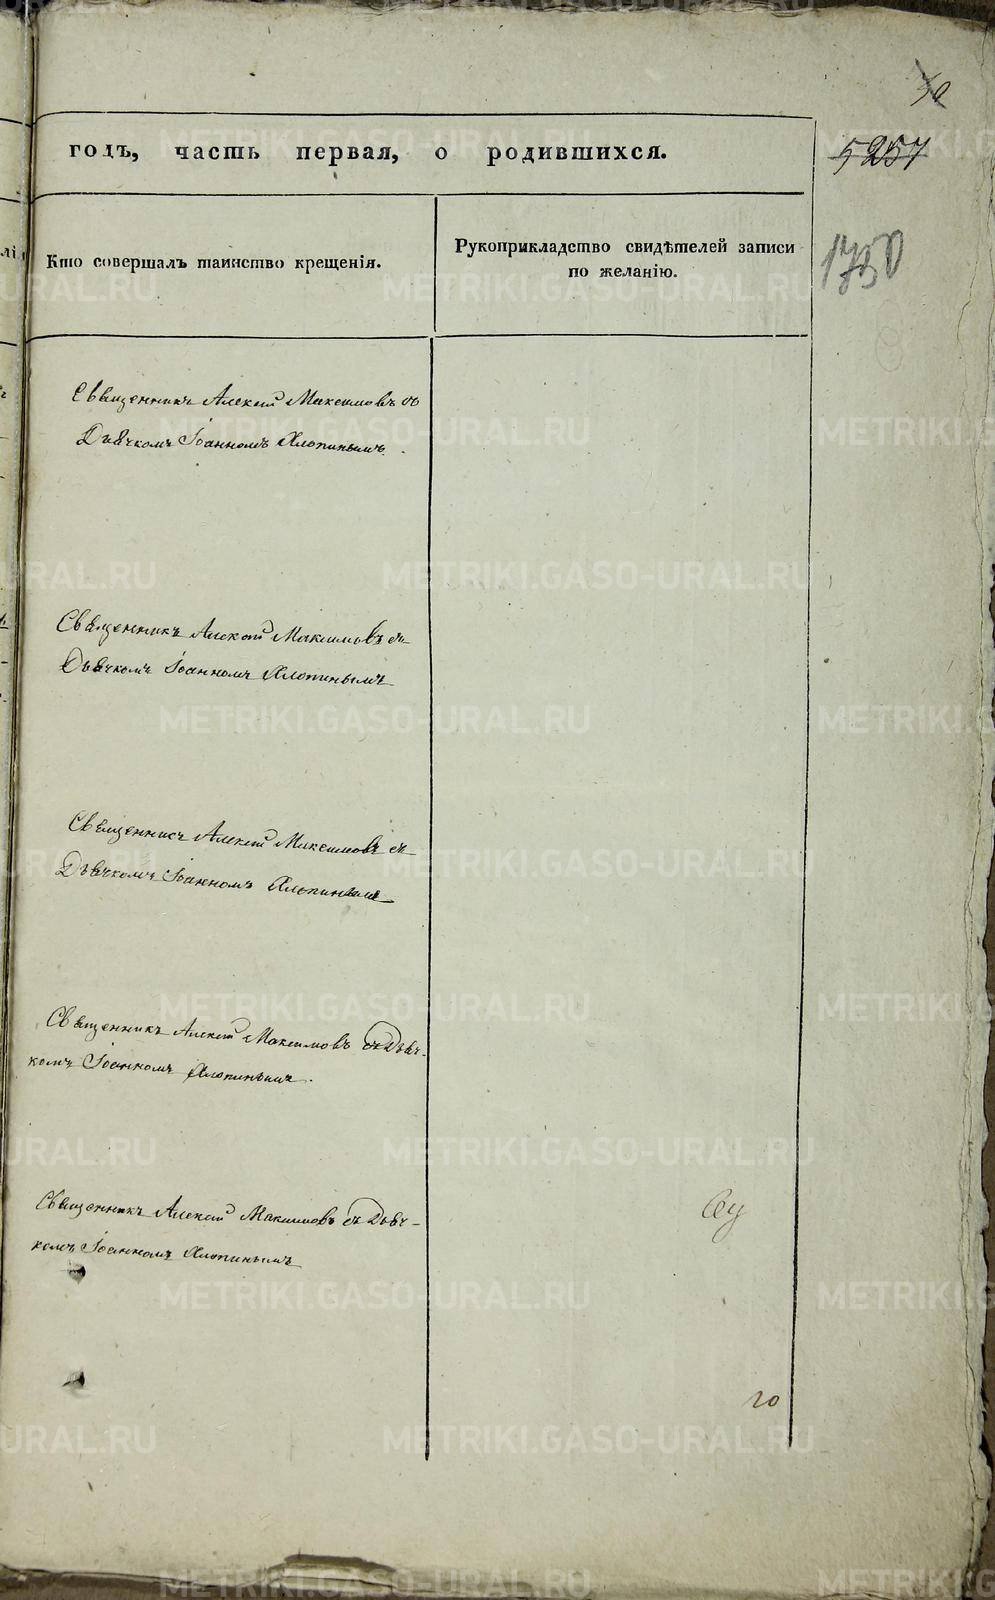 годъ, часть первая, о родившихся.
5257
1750
Кто совершалъ таинство крещенія.
Рукоприкладство свидѣтелей записи
по желанію.
Священникъ Алексѣй Максимовъ съ
Дьячкомъ Іоанномъ Хлопинымъ.
Священникъ Алексѣй Максимовъ съ
Дьячкомъ Іоанномъ Хлопинымъ
Священникъ Алексѣй Максимовъ съ
Дьячкомъ Іоанномъ Хлопинымъ
Священникъ Алексѣй Максимовъ съ Дьяч-
комъ Іоанномъ Хлопинымъ.
Священникъ Алексѣй Максимовъ съ Дьяч-
комъ Іоанномъ Хлопинымъ
METRIKI.GASO-URAL.RU